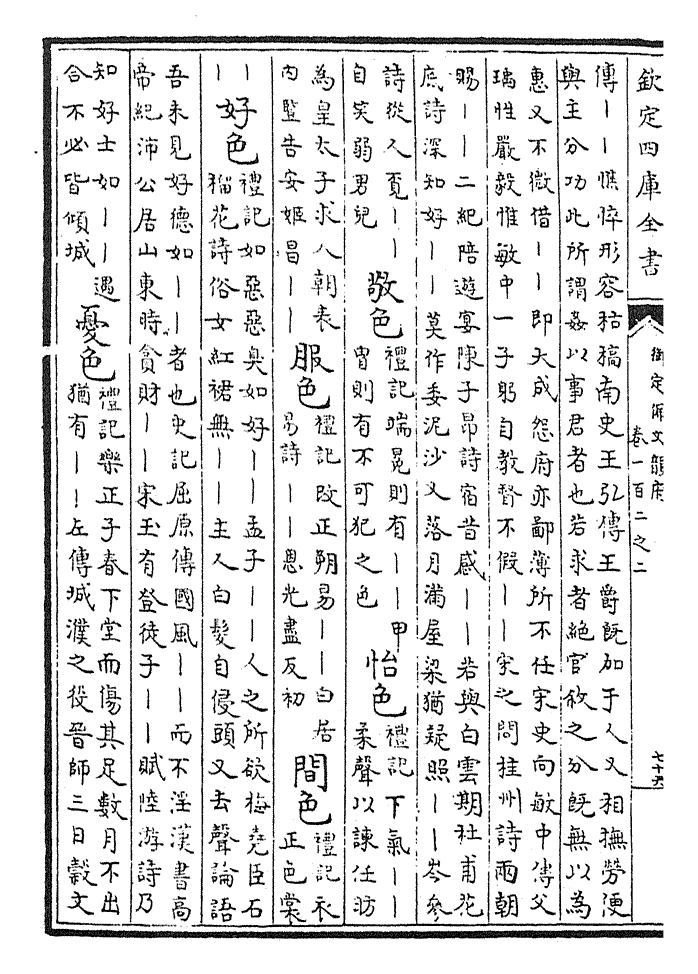 欽定四庫全書
御定佩文韻府
卷一百二之二
七十六
傳丨丨憔悴形容枯稿南史王弘傳王爵既加于人又相撫勞便
與主分功此所謂姦以事君者也若求者絕官敘之分既無以為
惠又不微借丨丨即大成怨府亦鄙薄所不任宋史向敏中傳父
瑀性嚴毅惟敏中一子躬自教督不假丨丨宋之問桂州詩兩朝
賜丨丨二紀陪遊宴陳子昂詩宿昔感丨丨若與白雲期杜甫花
底詩深知好丨丨莫作委泥沙又落月滿屋梁猶疑照丨丨岑參
詩從人覓丨丨
自笑弱男兒
敬色
禮記端冕則有丨丨甲
冑則有不可犯之色
怡色
禮記下氣丨丨
柔聲以諫任昉
為皇太子求人朝表
內豎告安姬昌丨丨
服色
禮記改正朔易丨丨白居
易詩丨丨恩光盡反初
間色
禮記衣
正色裳
丨
丨
好色
禮記如惡惡臭如好丨丨孟子丨丨人之所欲梅堯臣石
榴花詩俗女紅裙無丨丨主人白髮自侵頭又去聲論語
吾未見好德如丨丨者也史記屈原傳國風丨丨而不淫漢書高
帝紀沛公居山東時貪財丨丨宋玉有登徒子丨丨賦陸游詩乃
知好士如丨丨遇
合不必皆傾城
憂色
禮記樂正子春下堂而傷其足數月不出
猶有丨丨左傳城濮之役晉師三日穀文